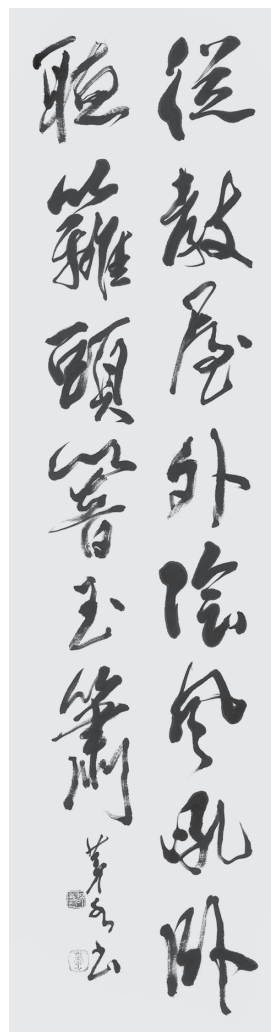 從教屋外陰風吼臥
聽籬頭響玉簫
書